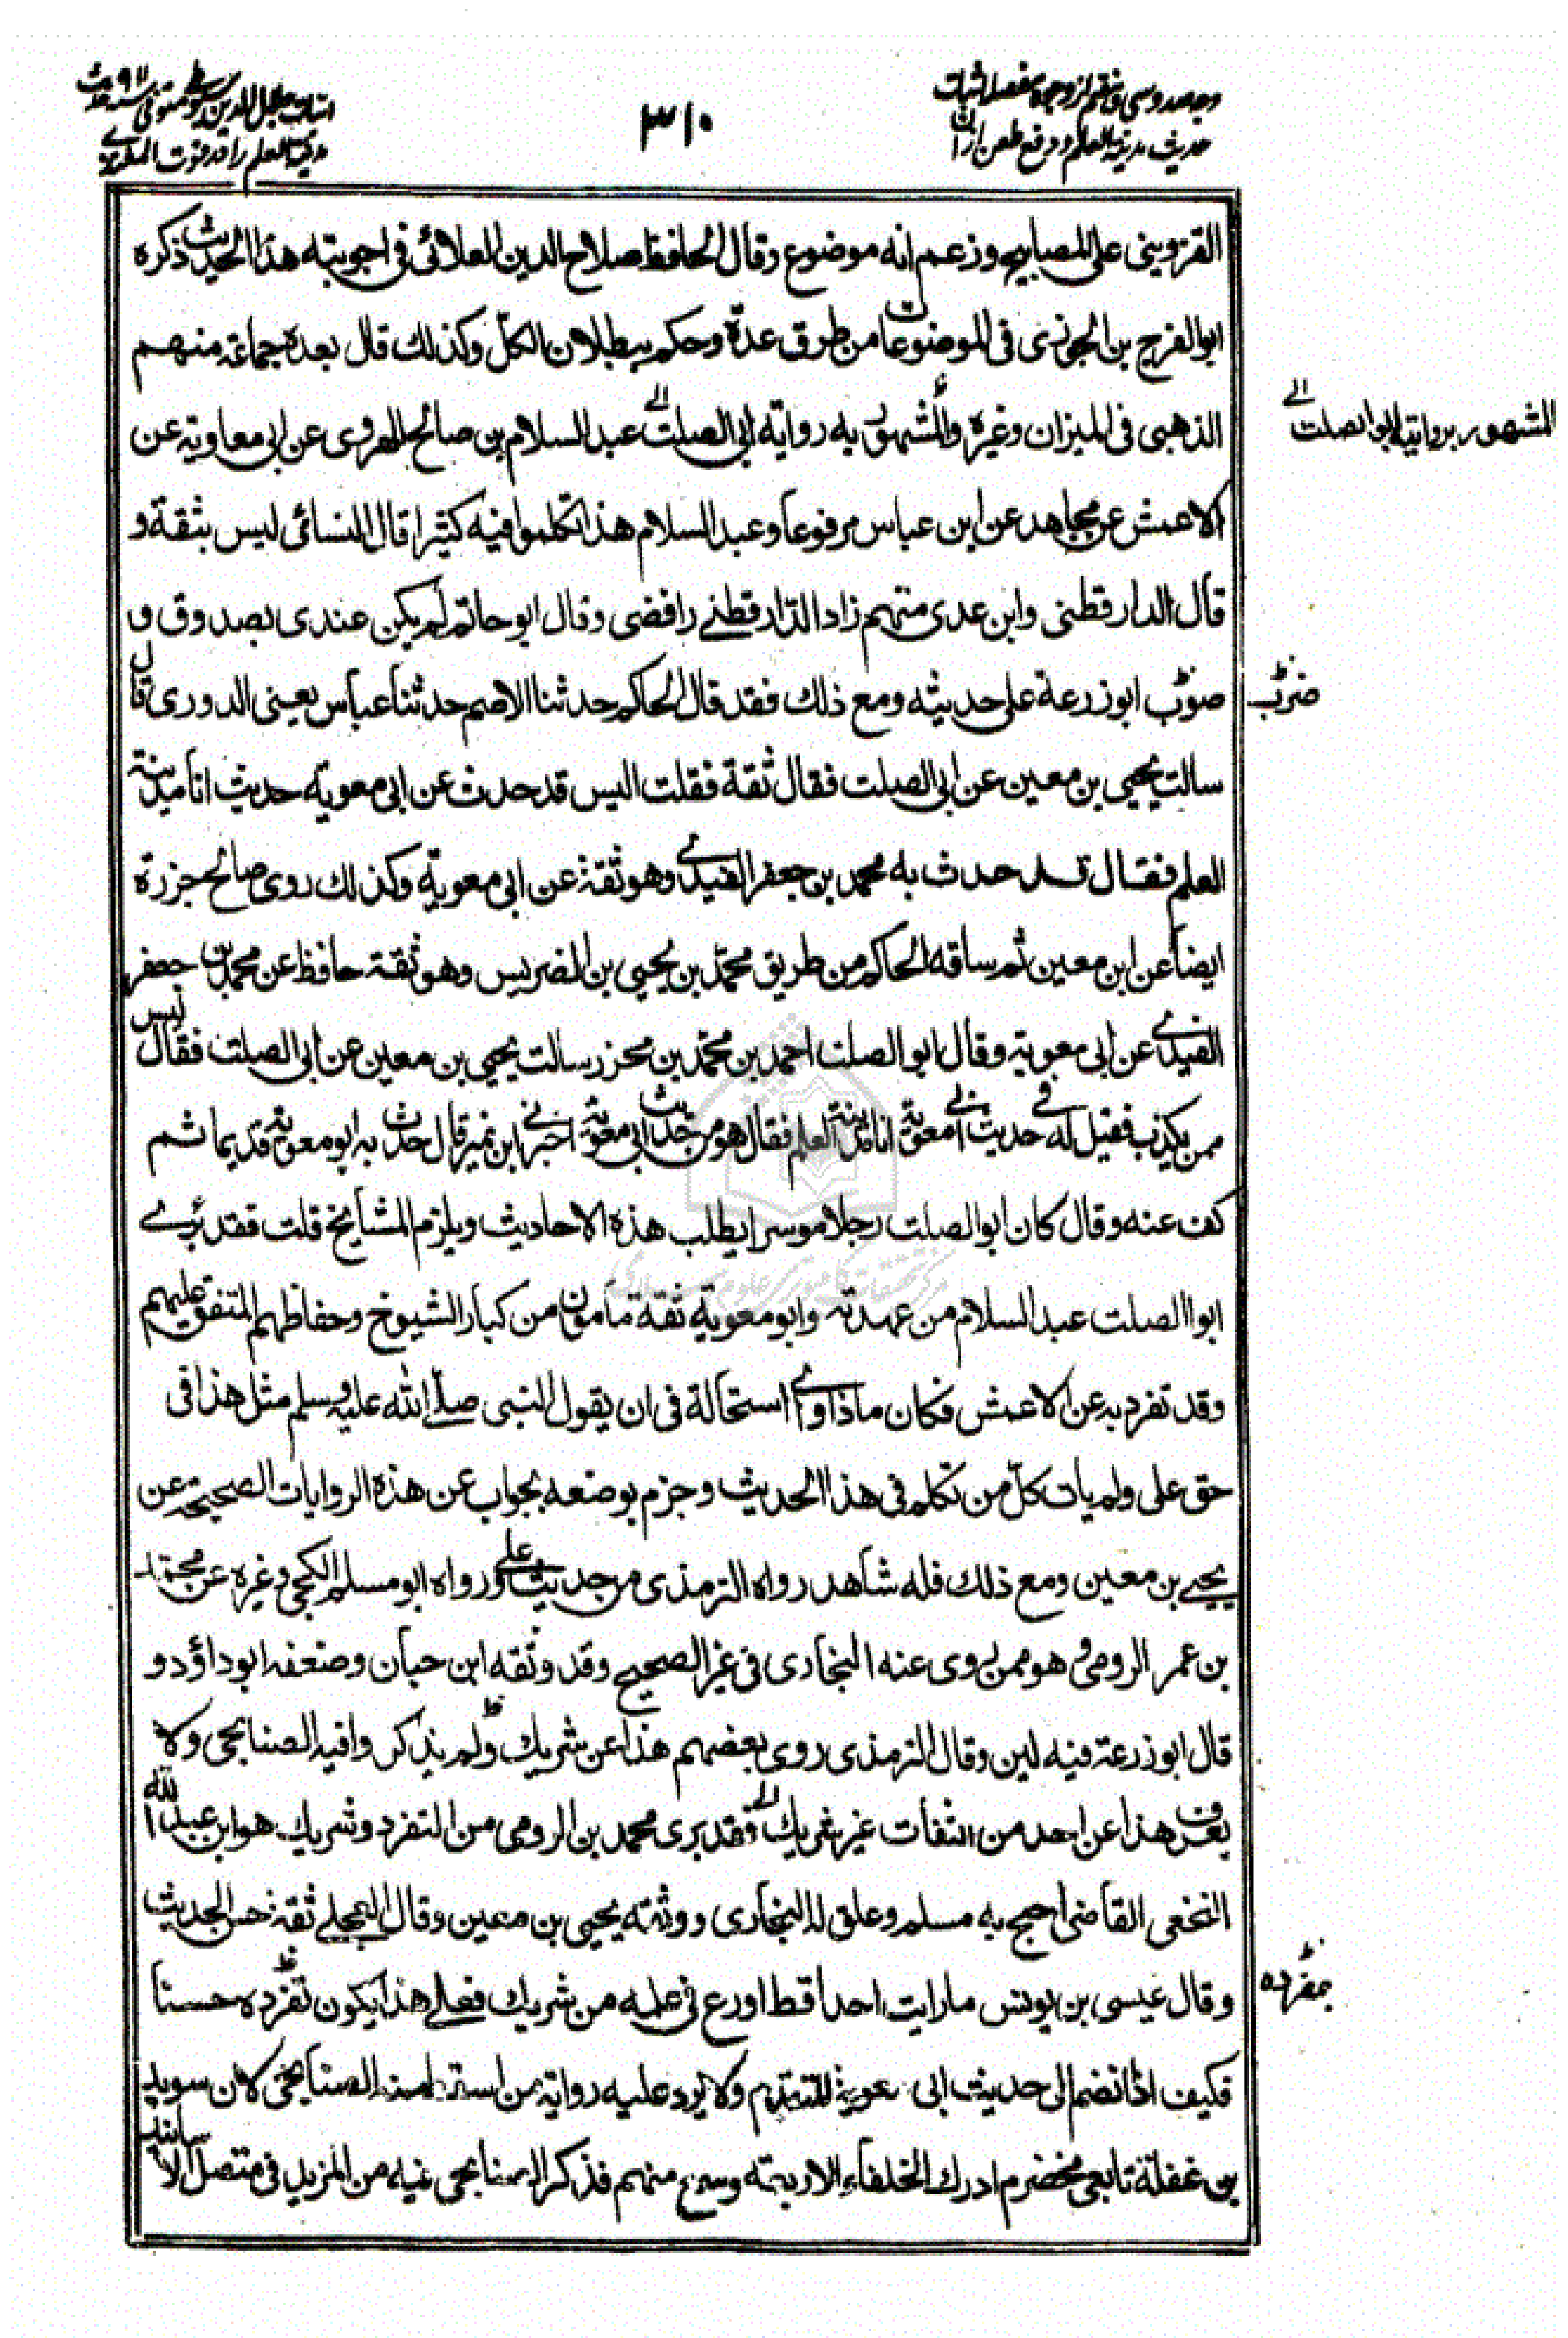 وجه صد و سی و هفتم از وجوه مفصله اثبات
حدیث مدینة العلم و دفع طعن از ان
۳۱۰
اثبات جلال الدین سیوطی متوفی سنه ۹۱۱ حدیث
مدینة العلم را در قوت المغتذی
القزوینی علی المصابیح وزعم انه موضوع وقال الحافظ صلاح الدین العلائی فی اجوبته هذا الحدیث ذکره
ابو الفرج بن الجوزی فی الموضوعات من طرق عدّة وحکم ببطلان الکلّ وکذلک قال بعده جماعة منهم
الذهبی فی المیزان وغیره والمشهور به روایة ابی الصلت عبد السلام بن صالح الهروی عن ابی معاویة عن
المشهور بروایته ابو الصلت
الاعمش عن مجاهد عن ابن عباس مرفوعا وعبد السلام هذا تکلموا فیه کثیرا قال النسائی لیس بثقة و
قال الدار قطنی وابن عدی متهم زاد الدّار قطنے رافضی وقال ابو حاتم لم یکن عندی بصدوق و
صوّب ابو زرعة علی حدیثه ومع ذلک فقد قال الحاکم حدثنا الاصم حدثنا عباس یعنی الدوری قال
ضرب
سالت یحیی بن معین عن ابی الصلت فقال ثقة فقلت الیس قد حدث عن ابی معویة حدیث انا مدینة
العلم فقال قد حدث به محمد بن جعفر الفیدی وهو ثقة عن ابی معویة وکذلک روی صالح جزرة
ایضا عن ابن معین ثم ساقه الحاکم من طریق محمّد بن یحیی بن الضریس وهو ثقة حافظ عن محمد بن جعفر
الفیدی عن ابی معویة وقال ابو الصلت احمد بن محمّد بن محرز سالت یحیی بن معین عن ابی الصلت فقال لیس
ممن یکذب فقیل له فی حدیث ابی معویة انا مدینة العلم فقال هو من حدیث ابی معویة اخبرنی ابن نمیر قال حدث به ابو معویة قدیما ثم
کف عنه وقال کان ابو الصلت رجلا موسرا یطلب هذه الاحادیث ویلزم المشایخ قلت فقد برئ
ابوا الصلت عبد السلام من عهدته وابو معویة ثقة مامون من کبار الشیوخ وحفاظهم المتفق علیهم
وقد تفرد به عن الاعمش فکان ماذا وای استحالة فی ان یقول النبی صلے الله علیه وسلم مثل هذا فی
حق علی ولم یات کلّ من تکلم فی هذا الحدیث وجزم بوضعه بجواب عن هذه الروایات الصحیحة عن
یحیے بن معین ومع ذلک فله شاهد رواه الترمذی من حدیث علی ورواه ابو مسلم الکجی وغیره عن محمد
بن عمر الرومی وهو ممن روی عنه البخاری فی غیر الصحیح وقد وثقه ابن حبان وضعفه ابو داؤد و
قال ابو زرعة فیه لین وقال الترمذی روی بعضهم هذا عن شریک ولم یذکروا فیه الصنابحی ولا
یعرف هذا عن احد من الثقات غیر شریک فقد بری محمد بن الرومی من التفرد وشریک هو ابن عبد الله
النخعی القاضی احتج به مسلم وعلق له البخاری ووثقه یحیی بن معین وقال العجلے ثقة حسن الحدیث
وقال عیسی بن یونس ما رایت احدا قط اورع فی علمه من شریک فعلے هذا یکون تفرده حسنا
بمفرده
فکیف اذا انضم الی حدیث ابی معویة المتقدم ولا یرد علیه روایة من اسقط منه الصنابحی لان سوید
بن غفلة تابعی مخضرم ادرک الخلفاء الاربعة وسمع منهم فذکر الصنابحی فیه من المزید فی متصل الاسانید